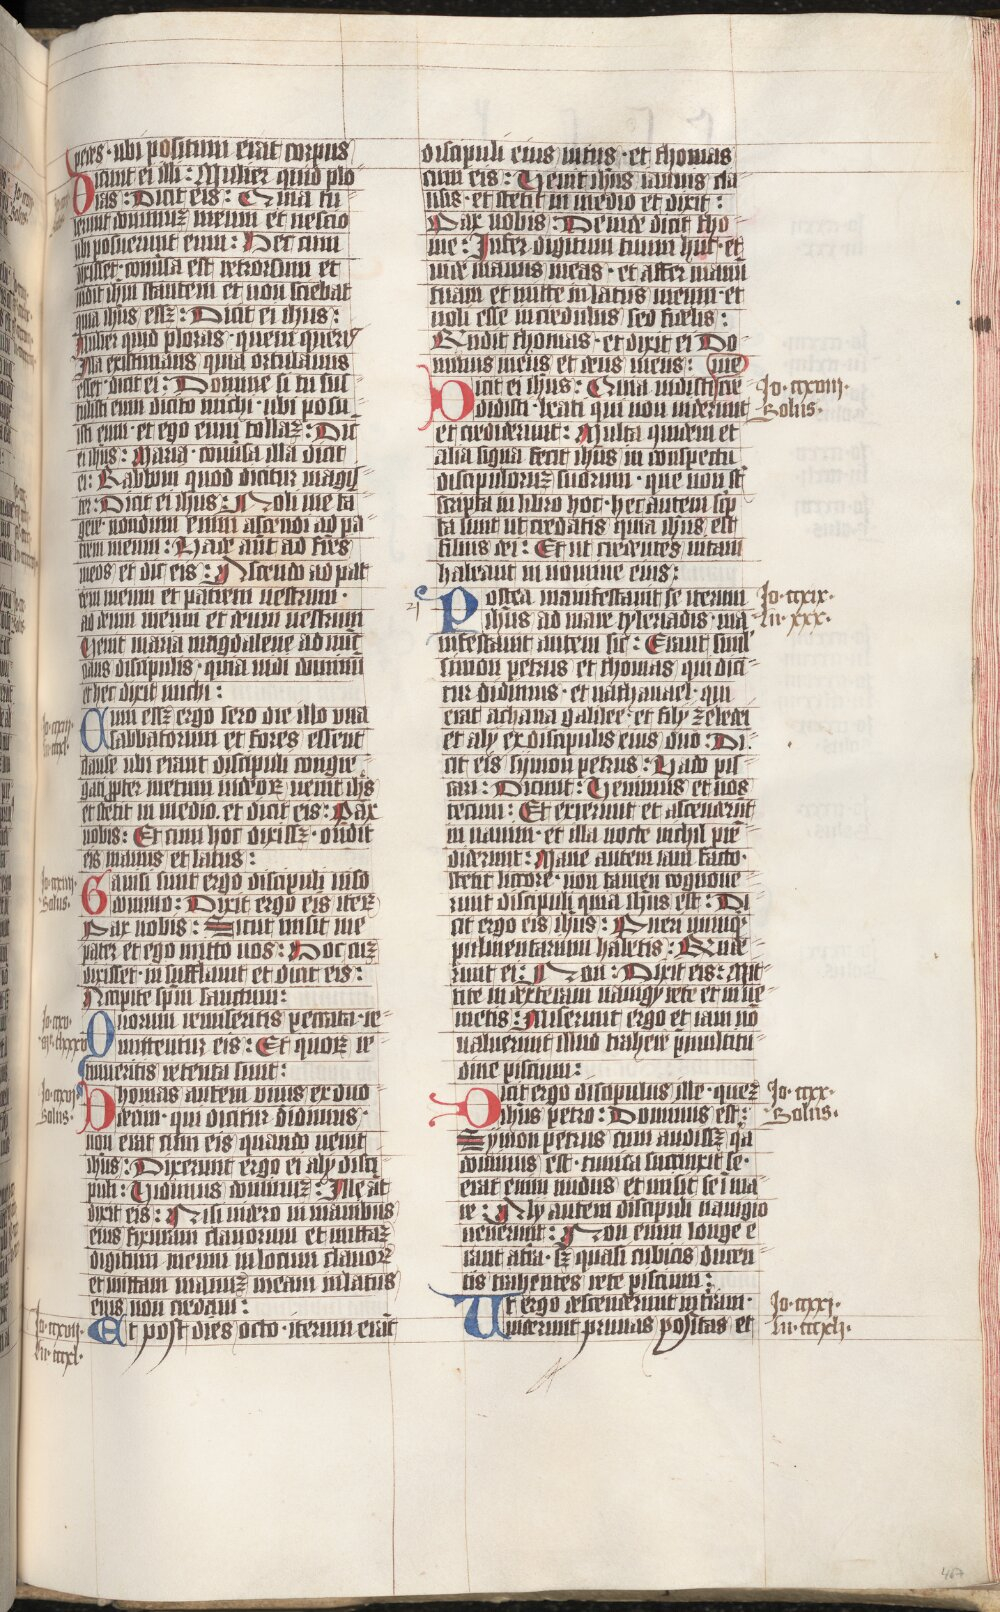 pedes · ubi positum erat corpus
Dicunt ei illi : Mulier quid plo
ras : Dicit eis : Quia tu
lerunt dominuz meum et nescio
ubi posuerunt eum : Hec cum
dixisset · conversa est retrorsum et
vidit ihm stantem et non sciebat
quia ihus essz : Dicit ei ihus :
Mulier quid ploras · quem queris
Illa existimans quia ortulanus
esset · dicit ei : Domine si tu sus
tulisti eum dicito michi · ubi posu
isti eum · et ego eum tollaz : Dic
ei ihus : Maria · conversa illa dicit
ei : Rabboni quod dicitur magis
ter : Dicit ei ihus : Noli me ta
gere · nondum enim ascendi ad pa
trem meum : Vade aut ad fres
meos et dic eis : Ascendo ad pat
rem meum et patrem vestrum ·
ad deum meum et deum vestrum
Venit maria magdalene ad nun
cians discipulis · quia vidi dominum
et hec dixit michi :
Cum essz ergo sero die illo una
sabbatorum et fores essent
clause ubi erant discipuli congre
gati ppter metum iudeor venit ihs
et stetit in medio · et dicit eis : Pax
vobis : Et cum hoc dixissz · ondit
eis manus et latus :
Gavisi sunt ergo discipuli viso
domino : Dixit ergo eis iter
Pax vobis : Sicut misit me
pater et ego mitto vos : Hoc cuz
dixisset · in sufflavit et dicit eis :
Accipite spm sanctum :
Quorum remiseritis peccata · re
mittentur eis : Et quor re
tinueritis retenta sunt :
Thomas autem unus ex duo
decim · qui dicitur didimus ·
non erat cum eis quando venit
ihus : Dixerunt ergo ei aly disci
puli : Vidimus dominuz : Ille at
dixit eis : Nisi videro in manibus
eius fixuram clavorum et mittaz
digitum meum in locum clavor
et mittam manuz meam in latus
eius non credam :
Et post dies octo · iterum erat
discipuli eius intus · et thomas
cum eis : Venit ihus ianuis clau
sis · et stetit in medio et dixit :
Pax vobis : Deinde dicit tho
me : Infer digitum tuum huc · et
vide manus meas · et affer manu
tuam et mitte in latus meum · et
noli esse incredulus sed fidelis :
Rndit thomas · et dixit ei Do
minus meus et deus meus : me
Dicit ei ihus : Quia vidisti cre
didisti · beati qui non viderunt
et crediderunt : Multa quidem et
alia signa fecit ihus in conspectu
discipuloruz suorum · que non st
scripta in libro hoc · hec autem scp
ta sunt ut credatis quia ihus est
filius dei : Et ut credentes vitam
habeant in nomine eius :
Postea manifestavit se iterum
ihus ad mare tyberiadis · ma
nifestavit autem sic : Erant simul
simon petrus et thomas qui dici
tur didimus · et nathanael · qui
erat achana galilee · et fily zebedei
et aly ex discipulis eius duo : Di
cit eis symon petrus : Vado pis
cari : Dicunt : Venimus et nos
tecum : Et exierunt et ascenderunt
in navim · et illa nocte nichil pre
diderunt : Mane autem iam facto ·
stetit litore · non tamen cognove
runt discipuli quia ihus est : Di
cit ergo eis ihus : Pueri numq
pulmentarium habetis : Rnde
runt ei : Non : Dixit eis : Mit
tite in dexteram navigy rete et inve
nietis : Miserunt ergo et iam no
valuerunt illud trahere p multitu
dine piscium :
Dicit ergo discipulus ille · quez
ihus petro : Dominus est :
Symon petrus cum audissz qa
dominus est · tunica succinxit se ·
erat enim nudus et misit se i ma
re : Aly autem discipuli navigio
venerunt : Non enim longe e
rant a tra · sz quasi cubitis ducen
tis trahentes rete piscium :
Ut ergo descenderunt in tram ·
viderunt prunas positas et
Io · ccxiii ·
Io · ccxiiii ·
Solus ·
Io · ccxv ·
Io · ccxvi ·
Solus ·
Io · ccxvii ·
Lu · cccxl ·
Io · ccxviii ·
Solus ·
21
Io · ccxix ·
Lu · xxx ·
Io · ccxx ·
Solus ·
Io · ccxxi ·
Lu · cccxli ·
467